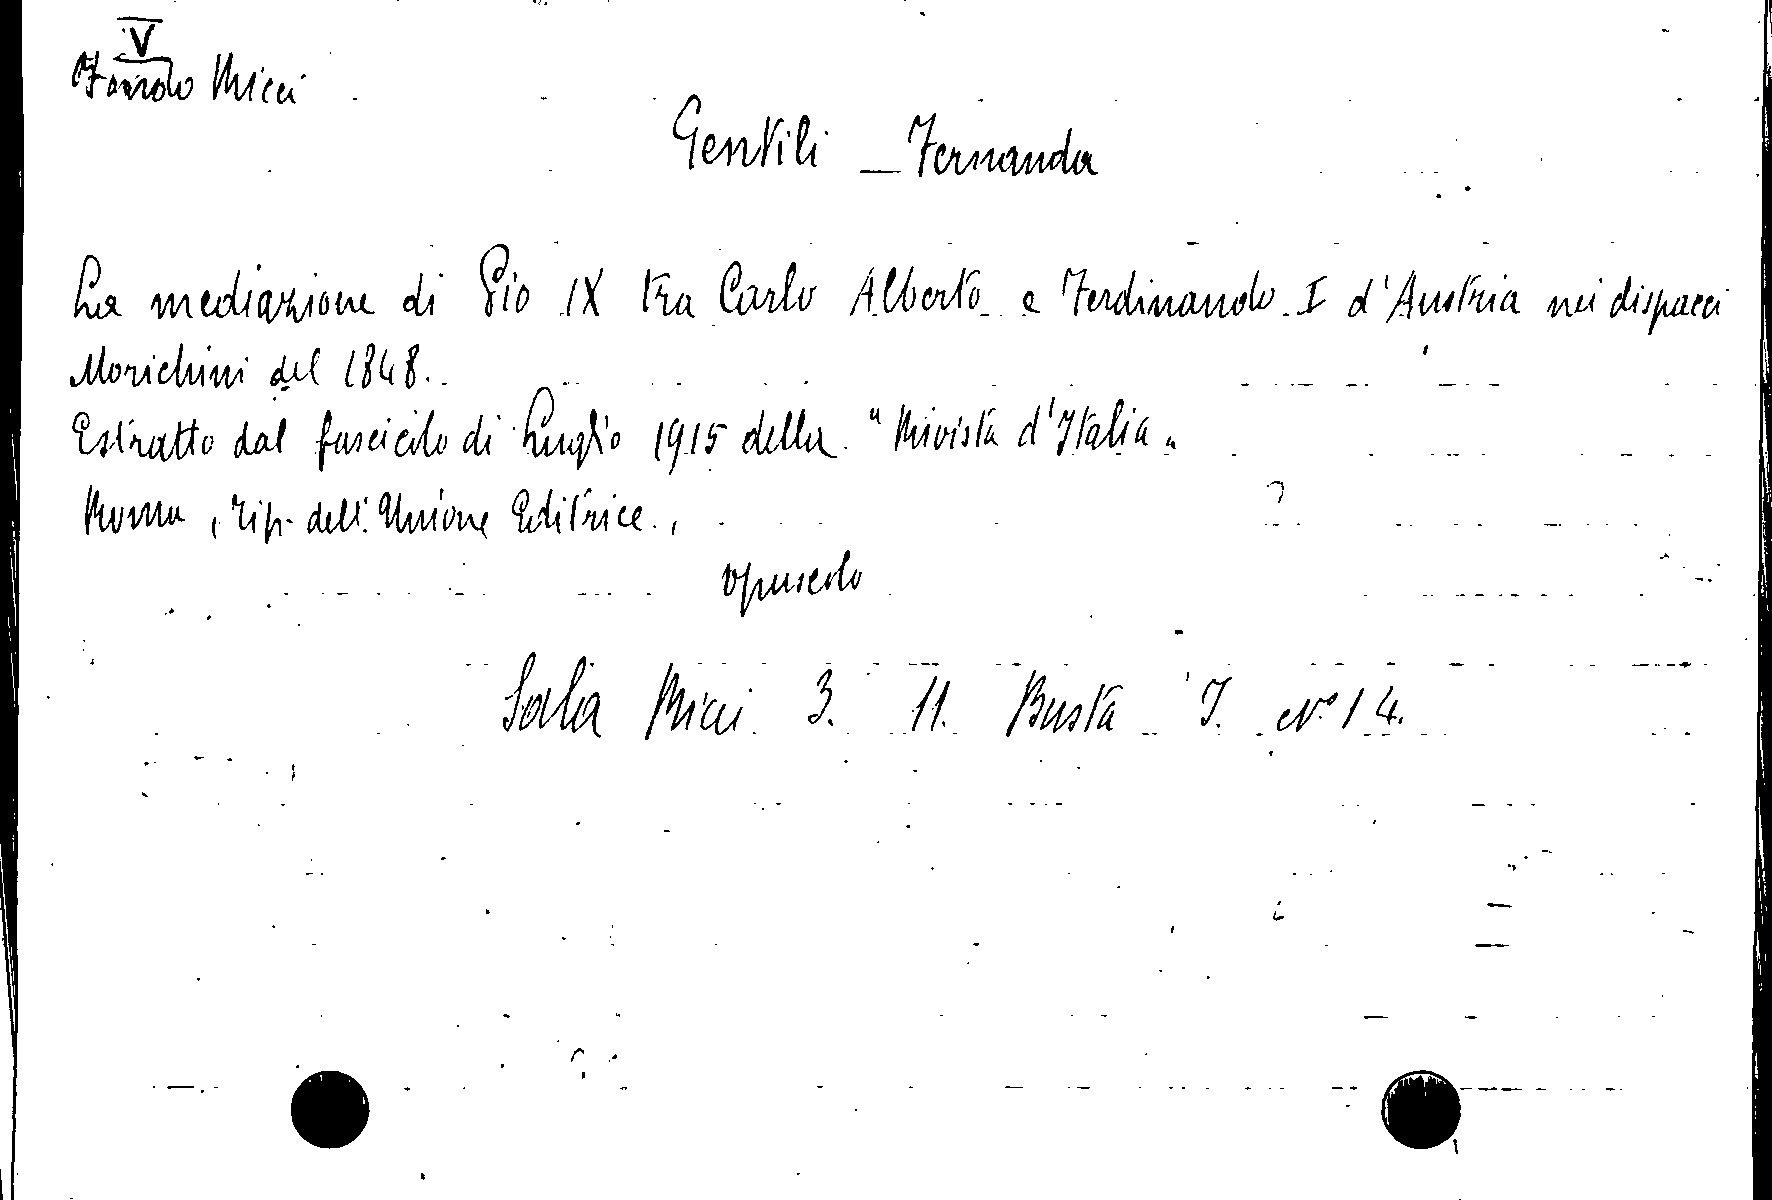 V
Fondo Ricci
Gentili - Fernanda
La mediazione di Pio IX tra Carlo Alberto e Ferdinando I d'Austria nei dispacci
Morichini del 1848.
Estratto dal fascicolo di Luglio 1915 della "Rivista d'Italia"
Roma, Tip. dell'Unione Editrice.,
opuscolo
Sala Ricci 3. 11. Busta I. N° 14.